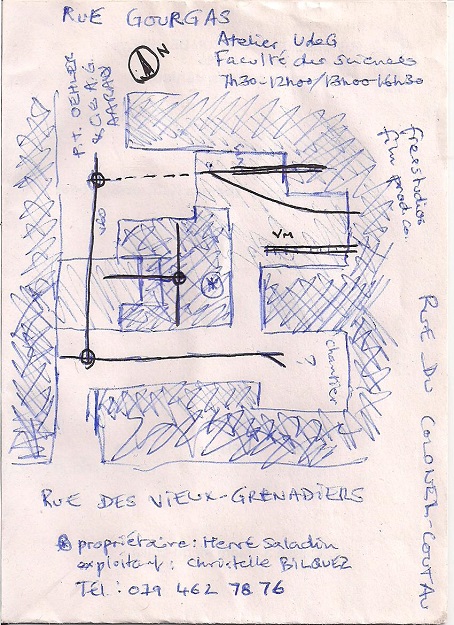 RUE GOURGAS
N
Atelier UdeG
Faculté des sciences
7h30-12h00/13h00-16h30
P.T. OEHLER
& CIE A.G.
AARAU
freestudios
film prod co.
VM
chantier
?
RUE DU COLONEL-COUTAU
RUE DES VIEUX-GRENADIERS
* propriétaire: Hervé Saladin
exploitant: Christelle BILQUEZ
Tél.: 079 462 78 76